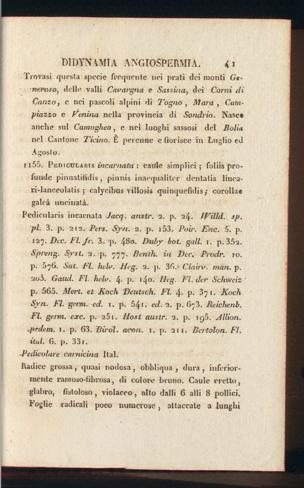 DIDYNAMIA ANGIOSPERMIA. 41
Trovasi questa specie frequente nei prati dei monti Ge-
neroso, delle valli Cavargna e Sassina, dei Corni di
Canzo, e nei pascoli alpini di Togno, Mara, Cam-
piazzo e Venina nella provincia di Sondrio. Nasce
anche sul Camogheo, e nei luoghi sassosi del Bolia
nel Cantone Ticino. È perenne e fiorisce in Luglio ed
Agosto.
1155. PEDICULARIS incarnata: caule simplici; foliis pro-
funde pinnatifidis, pinnis inaequaliter dentatis linea-
ri-lanceolatis; calycibus villosis quinquefidis; corollae
galeâ uncinatâ.
Pedicularis incarnata Jacq. austr. 2. p. 24. Willd. sp.
pl. 3. p. 212. Pers. Syn. 2. p. 153. Poir. Enc. 5. p.
127. Dec. Fl. fr. 3. p. 480. Duby bot. gall. 1. p. 352.
Spreng. Syst. 2. p. 777. Benth. in Dec. Prodr. 10.
p. 576. Sut. Fl. helv. Heg. 2. p. 36. Clairv. man. p.
203. Gaud. Fl. helv. 4. p. 140. Heg. Fl. der Schweiz
p. 565. Mert. et Koch Deutsch. Fl. 4. p. 371. Koch
Syn. Fl. germ. ed. 1. p. 541. ed. 2. p. 673. Reichenb.
Fl. germ. exc. p. 251. Host austr. 2. p. 195. Allion.
pedem. 1. p. 63. Birol. acon. 1. p. 211. Bertolon. Fl.
ital. 6. p. 331.
Pedicolare carnicina Ital.
Radice grossa, quasi nodosa, obbliqua, dura, inferior-
mente ramoso-fibrosa, di colore bruno. Caule eretto,
glabro, fistoloso, violacco, alto dalli 6 alli 8 pollici.
Foglie radicali poco numerose, attaccate a lunghi